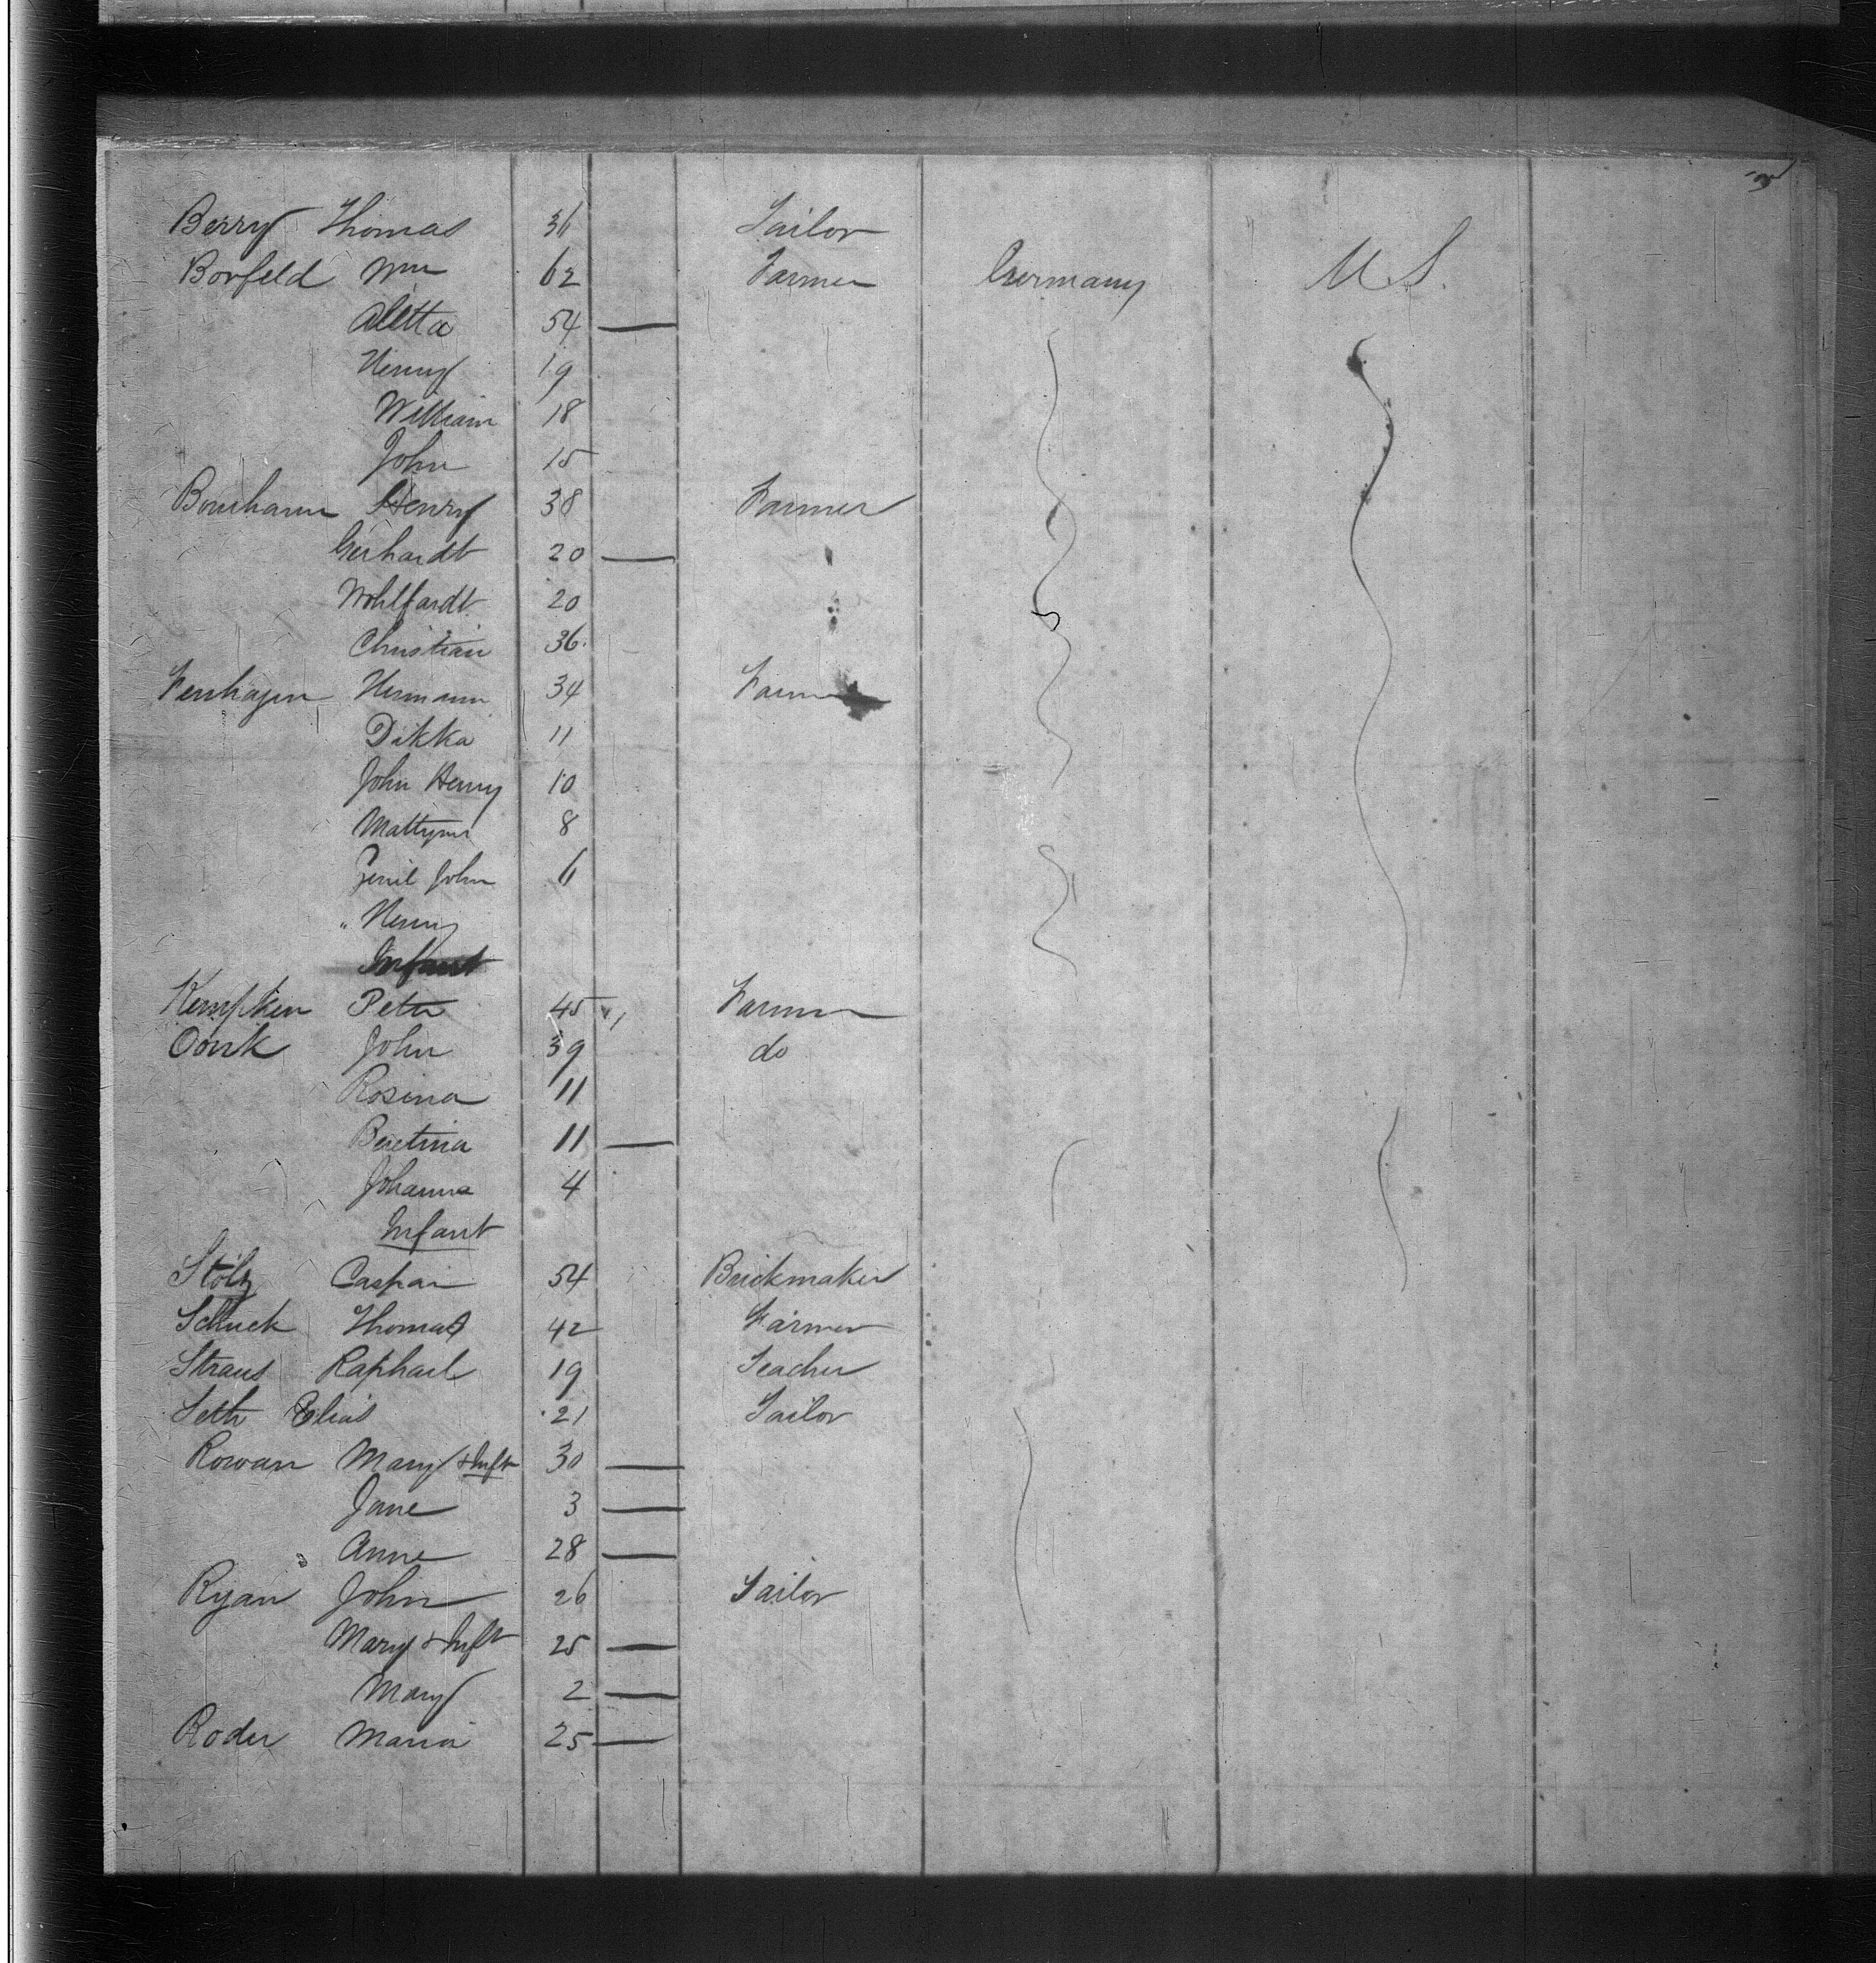 Berry Thomas 36 Tailor
Borfeld Wm 62 Farmer Germany U S.
Aletta 54 —
Henry 19
William 18
John 15
Bouhann Henry 38 Farmer
Gerhardt 20 —
Wohlfardt 20
Christian 36
Fenhagen Hermann 34 Farmer
Dikka 11
John Henry 10
8
John 6
" Henry
Infant
Kempken Peter 45 Farmer
Oonk John 39 do
Rosina 11
Bertina 11 —
Johanna 4
Infant
Stolz Caspar 54 Brickmaker
Schuck Thomas 42 Farmer
Straus Raphael 19 Teacher
Seth Elias 21 Tailor
Rowan Mary & Inft 30 —
Jane 3 —
Anne 28 —
Ryan John 26 Tailor
Mary & Inft 25 —
Mary 2 —
Roder Maria 25 —